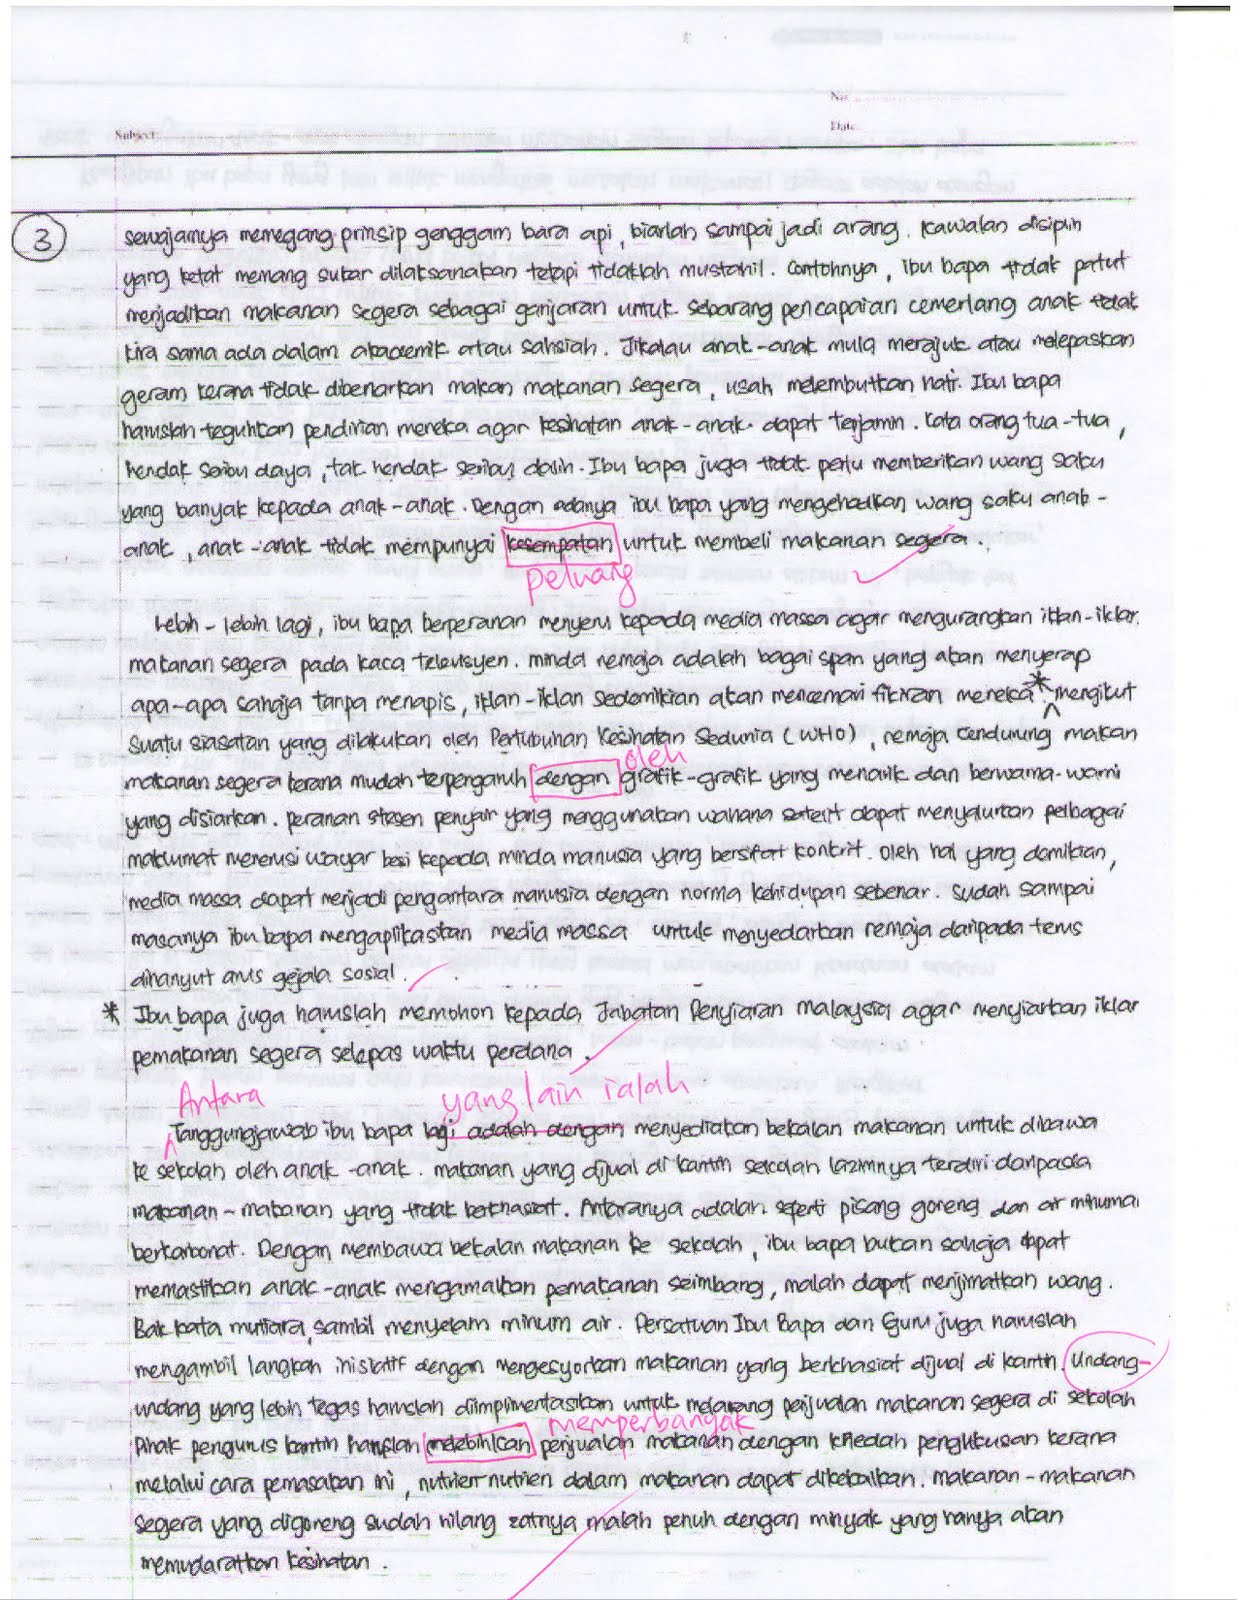 No:
Date:
Subject:
3
sewajarnya memegang prinsip genggam bara api, biarlah sampai jadi arang. Kawalan disiplin
yang ketat memang sukar dilaksanakan tetapi tidaklah mustahil. Contohnya, ibu bapa tidak patut
menjadikan makanan segera sebagai ganjaran untuk sebarang pencapaian cemerlang anak tidak
kira sama ada dalam akademik atau sahsiah. Jikalau anak-anak mula merajuk atau melepaskan
geram kerana tidak dibenarkan makan makanan segera, usah melembutkan hati. Ibu bapa
haruslah teguhkan pendirian mereka agar kesihatan anak-anak dapat terjamin. Kata orang tua-tua,
hendak seribu daya, tak hendak seribu dalih. Ibu bapa juga tidak perlu memberikan wang saku
yang banyak kepada anak-anak. Dengan adanya ibu bapa yang mengehadkan wang saku anak-
anak, anak-anak tidak mempunyai kesempatan untuk membeli makanan segera.
peluang
Lebih-lebih lagi, ibu bapa berperanan menyeru kepada media massa agar mengurangkan iklan-iklan
makanan segera pada kaca televisyen. Minda remaja adalah bagai span yang akan menyerap
apa-apa sahaja tanpa menapis, iklan-iklan sedemikian akan mencemari fikiran mereka.* Mengikut
suatu siasatan yang dilakukan oleh Pertubuhan Kesihatan Sedunia (WHO), remaja cenderung makan
oleh
makanan segera kerana mudah terpengaruh dengan grafik-grafik yang menarik dan berwarna-warni
yang disiarkan. Peranan stesen penyiar yang menggunakan wahana satelit dapat menyalurkan pelbagai
maklumat merentusi wayar besi kepada minda manusia yang bersifat konkrit. Oleh hal yang demikian,
media massa dapat menjadi pengantara manusia dengan norma kehidupan sebenar. Sudah sampai
masanya ibu bapa mengaplikasikan media massa untuk menyedarkan remaja daripada terus
dihanyut arus gejala sosial.
* Ibu bapa juga haruslah memohon kepada Jabatan Penyiaran Malaysia agar menyiarkan iklan
pemakanan segera selepas waktu perdana.
Antara yang lain ialah
Tanggungjawab ibu bapa lagi adalah dengan menyediakan bekalan makanan untuk dibawa
ke sekolah oleh anak-anak. Makanan yang dijual di kantin sekolah lazimnya terdiri daripada
makanan-makanan yang tidak berkhasiat. Antaranya adalah seperti pisang goreng dan air minuman
berkarbonat. Dengan membawa bekalan makanan ke sekolah, ibu bapa bukan sahaja dapat
memastikan anak-anak mengamalkan pemakanan seimbang, malah dapat menjimatkan wang.
Bak kata mutiara, sambil menyelam minum air. Persatuan Ibu Bapa dan Guru juga haruslah
mengambil langkah inisiatif dengan mengesyorkan makanan yang berkhasiat dijual di kantin. Undang-
undang yang lebih tegas haruslah diimplimentasikan untuk melarang penjualan makanan segera di sekolah
memperbanyak
Pihak pengurus kantin haruslah melebihkan penjualan makanan dengan kaedah pengukusan kerana
melalui cara pemasakan ini, nutrien-nutrien dalam makanan dapat dikekalkan. Makanan-makanan
segera yang digoreng sudah hilang zatnya malah penuh dengan minyak yang hanya akan
memudaratkan kesihatan.